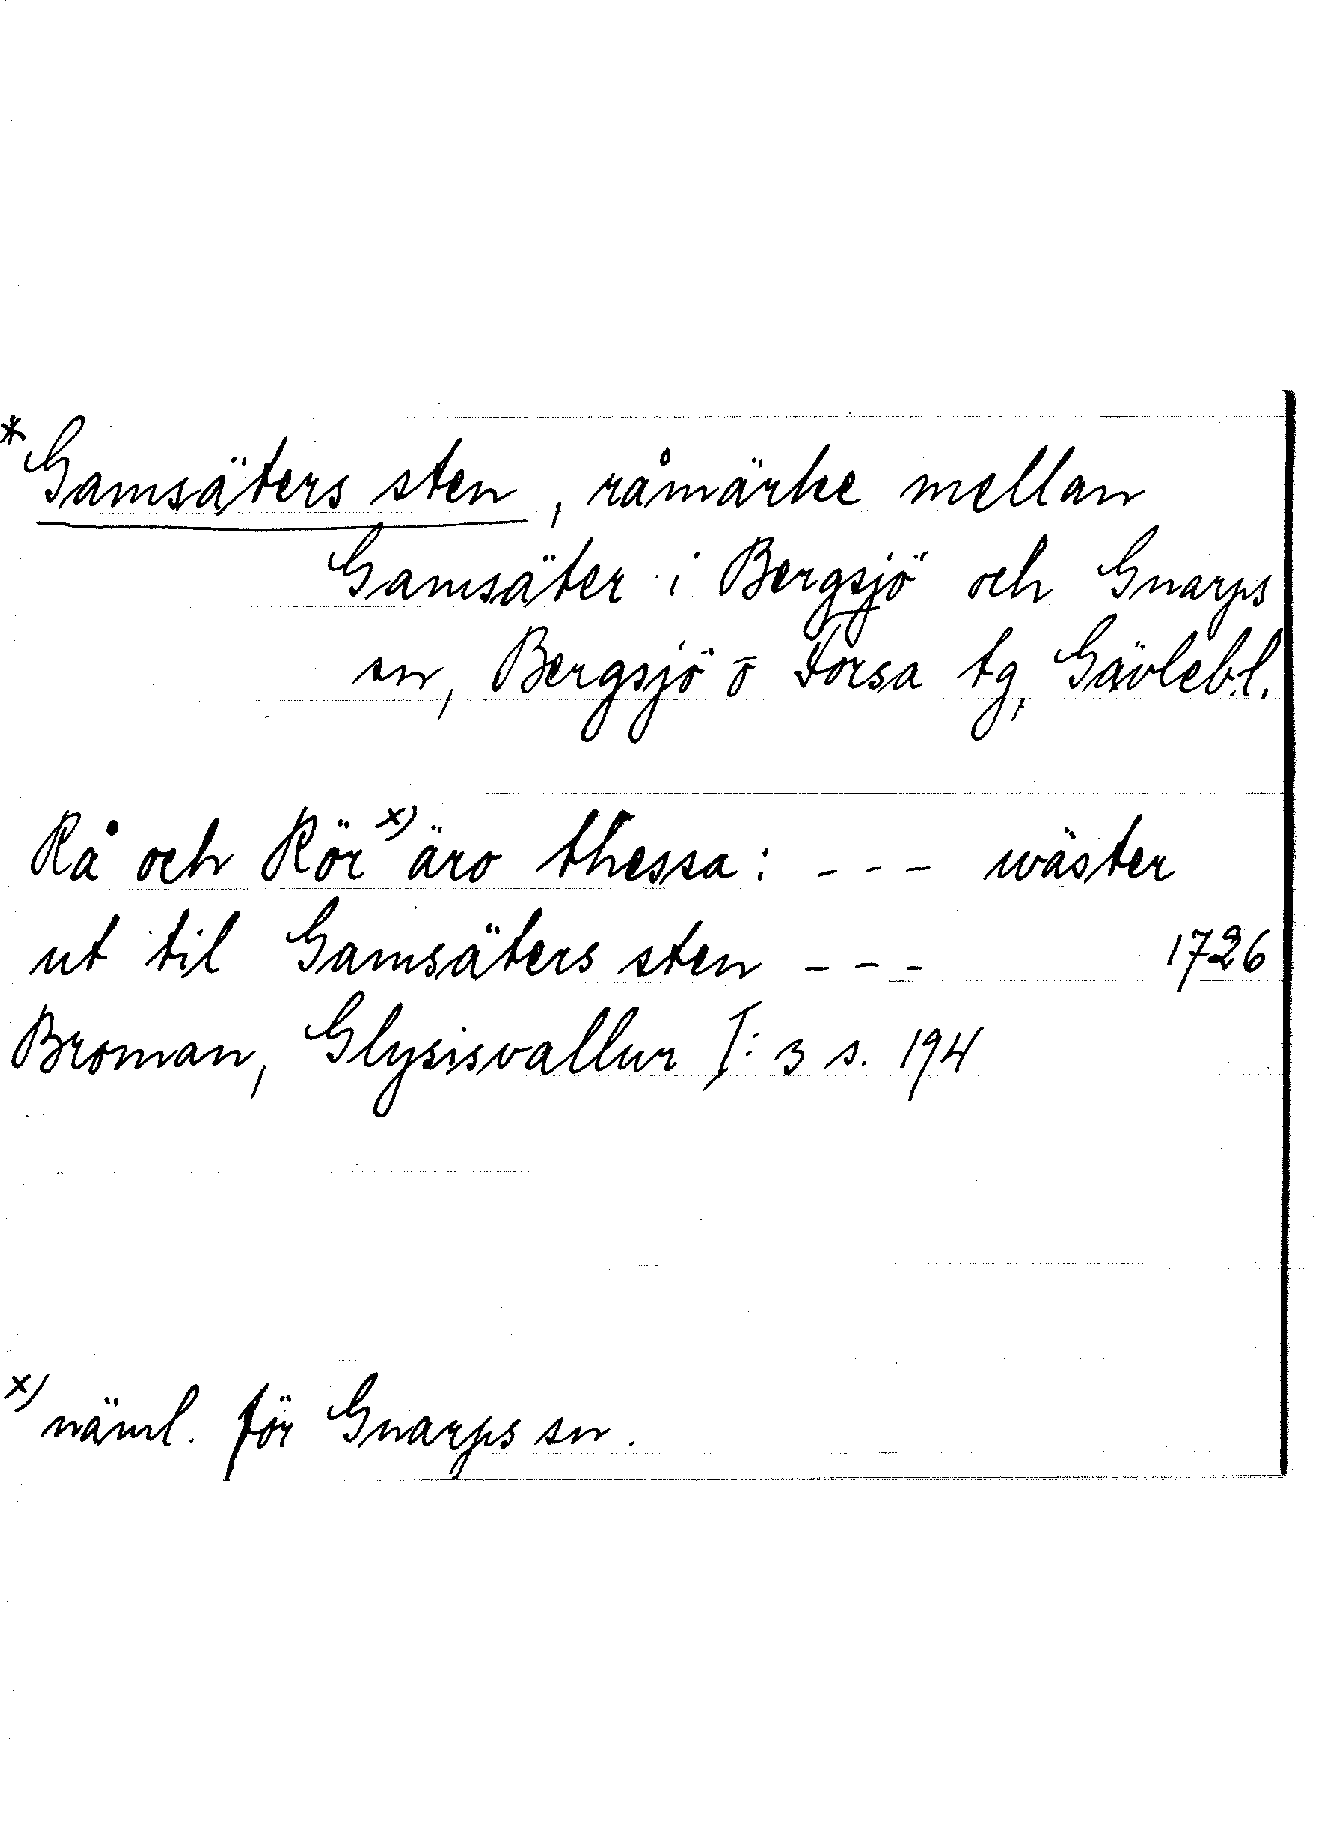 * Gamsäters sten, råmärke mellan
Gamsäter i Bergsjö och Gnarps
sn, Bergsjö o Forsa tg, Gävlebl.
Rå och Rör x) äro thessa: - - - wäster
ut til Gamsäters sten - - - 1726
Broman, Glysisvallur I: 3 s. 194
x) näml. för Gnarps sn.